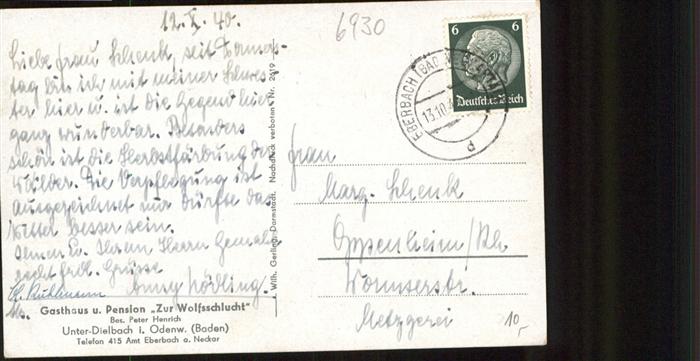 12. X. 40.
6930
Liebe Frau Schenk, seit Donners-
tag bin ich mit meiner Schwes-
ter hier u. ist die Gegend hier
ganz wunderbar. Besonders
schön ist die Herbstfärbung der
Wälder. Die Verpflegung ist
ausgezeichnet nur dürfte das
Wetter besser sein.
Ihnen u. Ihrem Herrn Gemahl
recht frdl. Grüsse
Anny
Kuhlmann
Gasthaus u. Pension „Zur Wolfsschlucht"
Bes. Peter Henrich
Unter-Dielbach i. Odenw. (Baden)
Telefon 415 Amt Eberbach a. Neckar
Wilh. Gerling, Darmstadt. Nachdruck verboten Nr. 2619
EBERBACH (BADEN)
13.10.
6 6
Deutsches Reich
Frau
Marg. Schenk
Oppenheim/Rh
Wormserstr.
Metzgerei
10,-